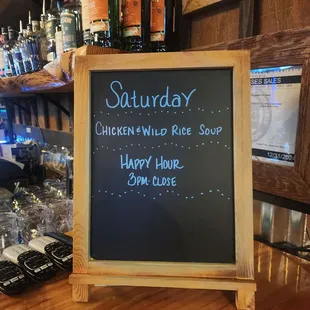 Saturday
CHICKEN & WILD RICE SOUP
HAPPY HOUR
3PM-CLOSE
SES SALES